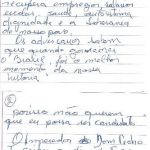 recupera empregos, salários
escolas, saúde, autoestima
dignidade e a soberania
do nosso país.
Os adversários sabem
que quando governamos
o Brasil, foi o melhor
momento da nossa
história.
porisso não querem
que eu possa ser candidato
O Imperador Dom Pedro